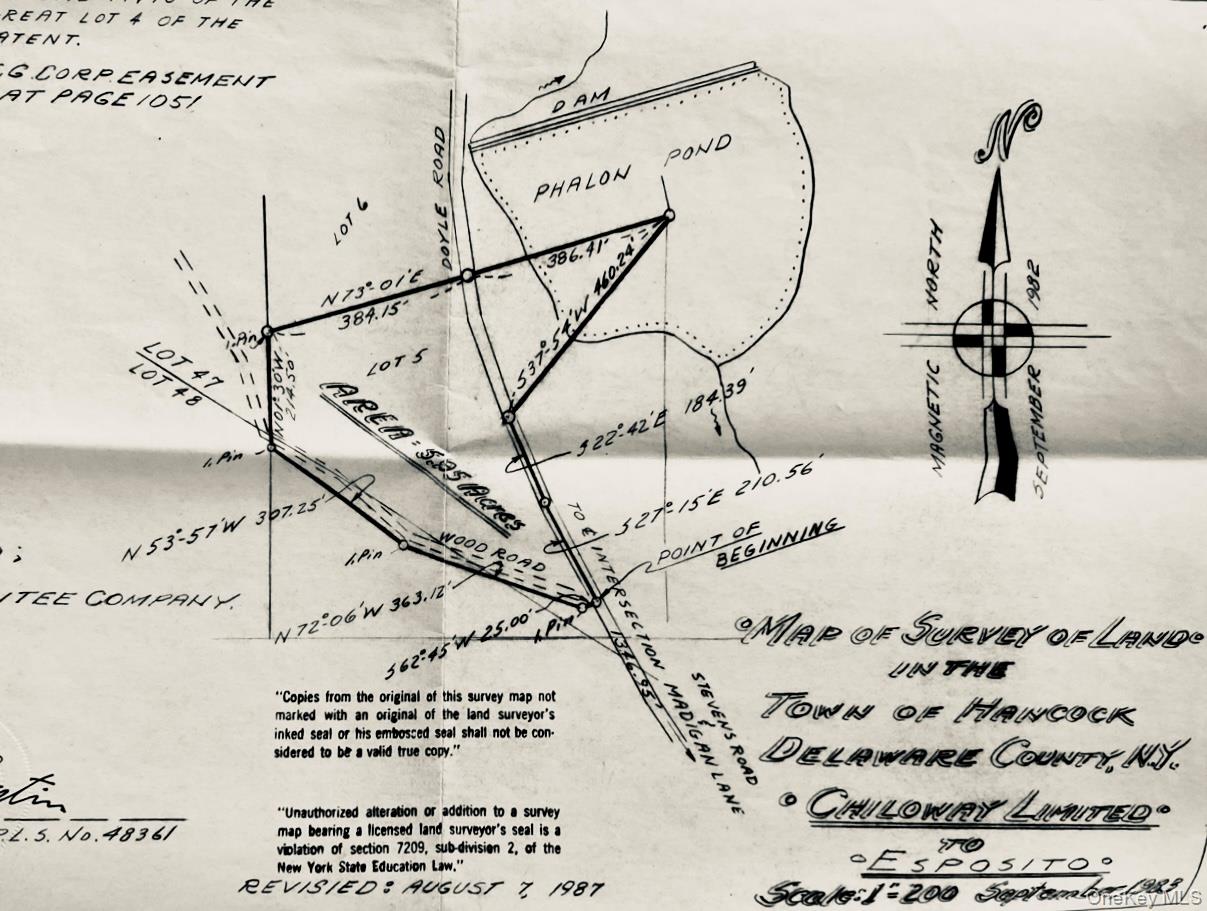 OF THE
REAT LOT 4 OF THE
ATENT.
G. CORP. EASEMENT
AT PAGE 1051
DAM
PHALON POND
DOYLE ROAD
LOT 6
N73°-01'E
384.15'
386.41'
S37°-54'W 460.24'
I. Pin
N01°-30'W
214.50'
LOT 5
LOT 47
LOT 48
AREA = 5.35 ACRES
I. Pin
S22°-42'E 184.39'
S27°-15'E 210.56'
N53°-57'W 307.25'
I. Pin
WOOD ROAD
POINT OF
BEGINNING
N72°-06'W 363.12'
S62°-45'W 25.00'
I. Pin
TO ℄ INTERSECTION MADIGAN LANE
&
STEVENS ROAD
1346.95'
N
MAGNETIC NORTH
SEPTEMBER 1982
;
NTEE COMPANY.
P.L.S. No. 48361
"Copies from the original of this survey map not
marked with an original of the land surveyor's
inked seal or his embossed seal shall not be con-
sidered to be a valid true copy."
"Unauthorized alteration or addition to a survey
map bearing a licensed land surveyor's seal is a
violation of section 7209, sub-division 2, of the
New York State Education Law."
REVISIED: AUGUST 7, 1987
MAP OF SURVEY OF LAND
IN THE
TOWN OF HANCOCK
DELAWARE COUNTY, N.Y.
CHILOWAY LIMITED
TO
ESPOSITO
Scale: 1"=200 September, 1983
OneKey MLS